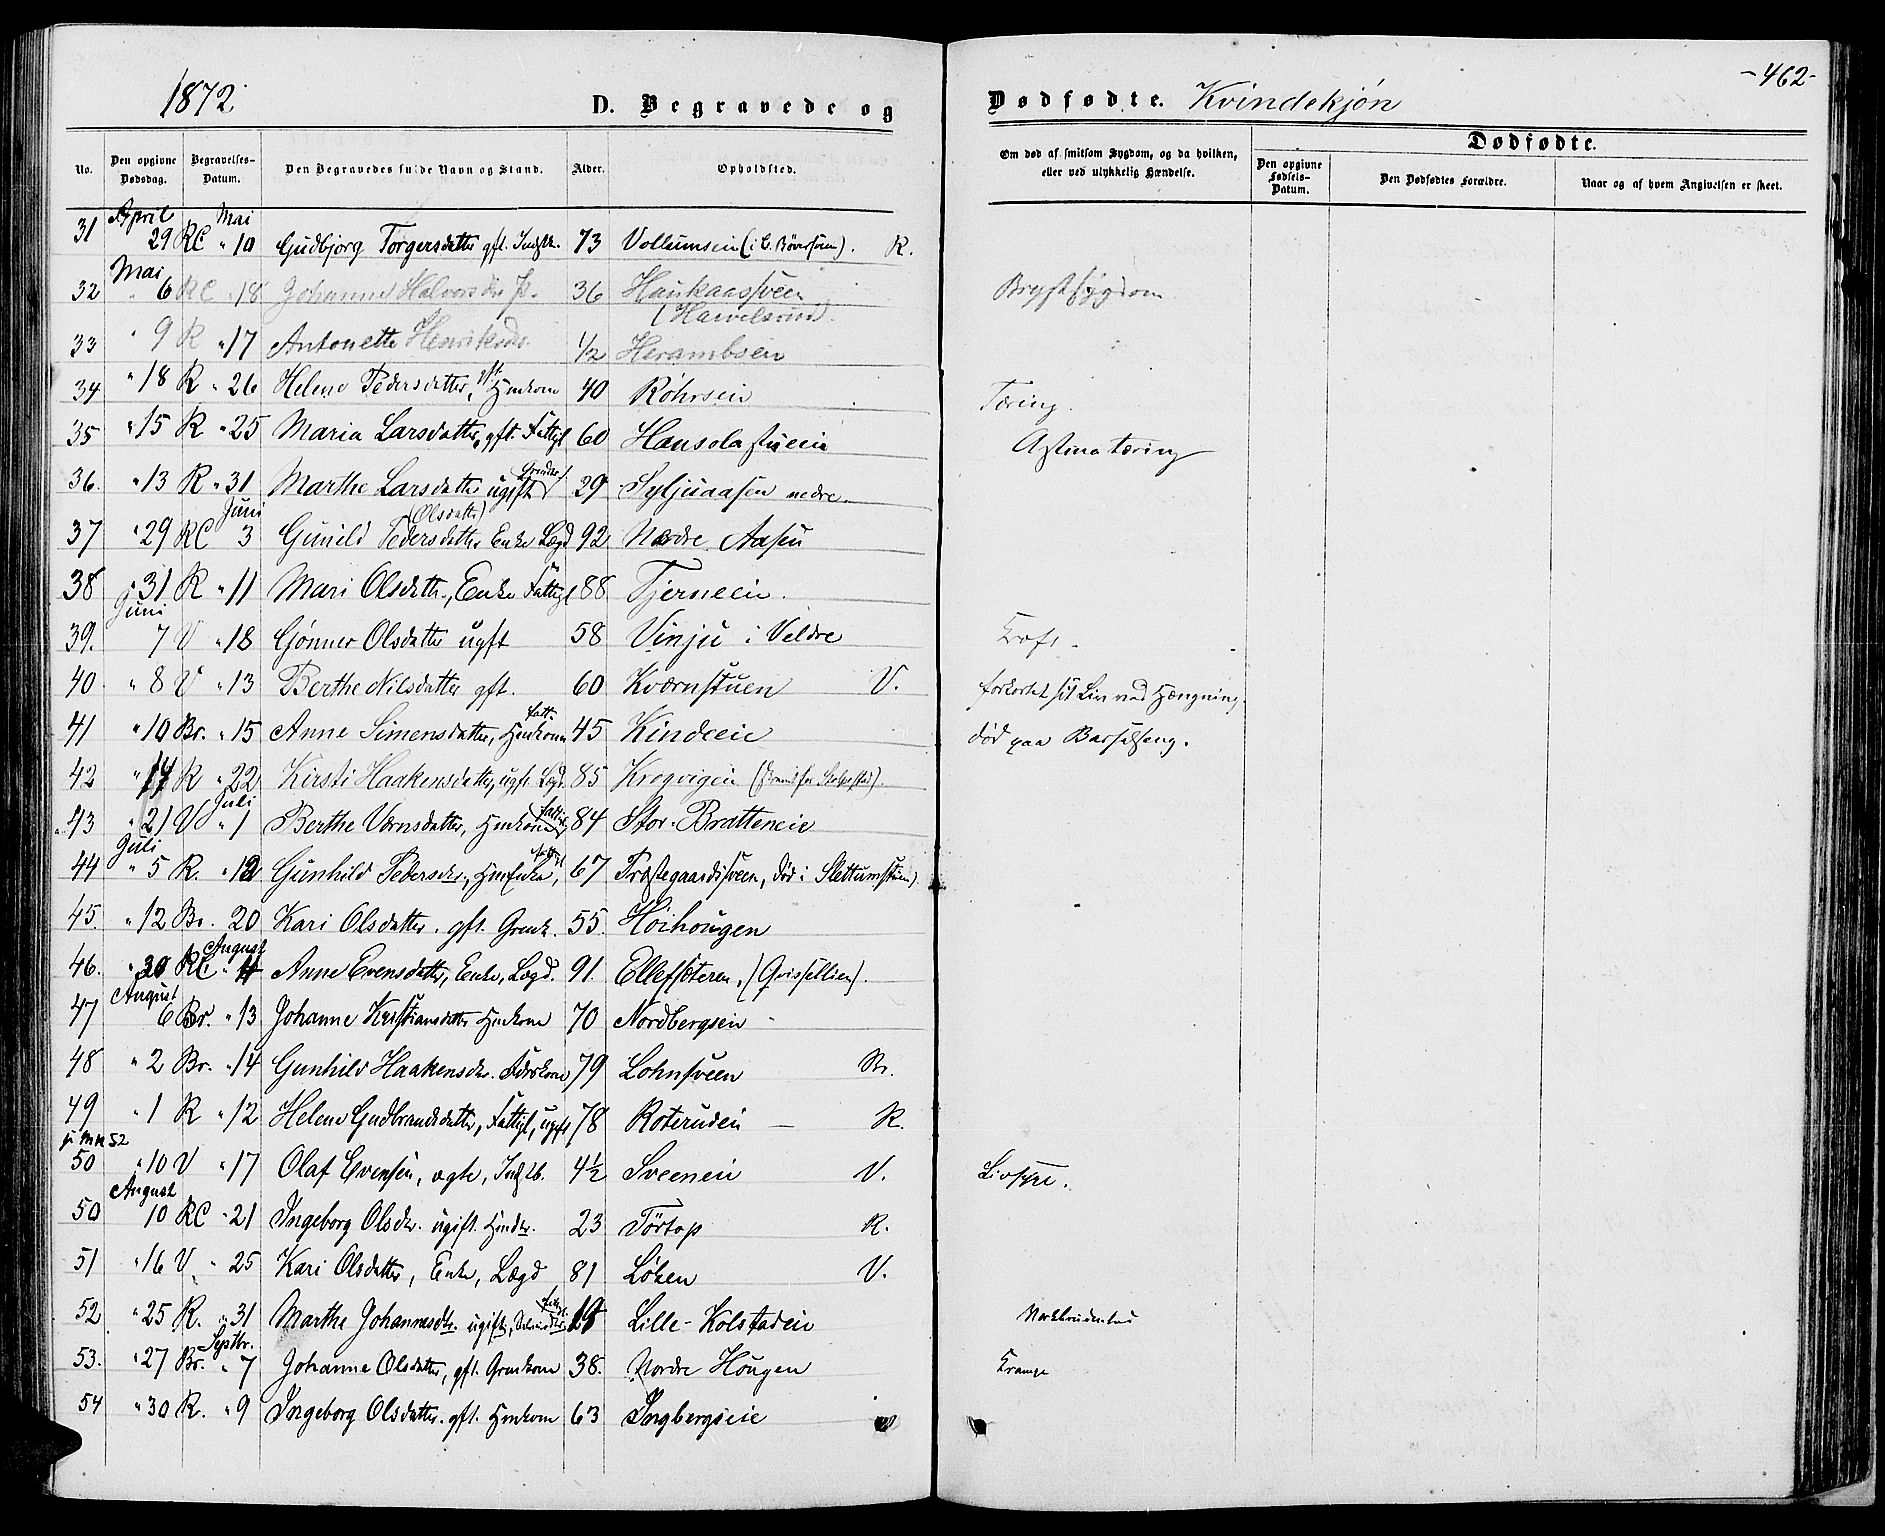 -462-
1872
D. Begravede og Dødfødte. Kvindekjøn
No.
Den opgivne Dødsdag.
Begravelses-Datum.
Den Begravedes fulde Navn og Stand.
Alder.
Opholdsted.
Om død af smitsom Sygdom, og da hvilken, eller ved ulykkelig Hændelse.
Dødfødte.
Den opgivne Fødsels-Datum.
Den Dødfødtes Forældre.
Naar og af hvem Angivelsen er skeet.
April Mai
31 29 RC " 10 Gudbjørg Torgersdatter gft. 73 Vollumseie R.
Mai
32 " 6 RC " 18 Johanne Halvorsdtr 36 Haukaassveen Brystsygdom
33 " 9 R " 17 Antonette Henriksdtr. 1/2 Herambseie
34 " 18 R " 26 Helene Pedersdatter, gft. Hmkone 40 Röhrseie Tæring.
35 " 15 R " 25 Maria Larsdatter, gft. Fattigl 60 Hansolastueeie Astma tæring
36. " 13 R " 31 Marthe Larsdatter ugift 29 Syljuaasen nedre
Juni (Olsdatter)
37 " 29 RC 3 Gunild Pedersdatter Enke Lægd 92 Nedre Aasen
38 " 31 R " 11 Mari Olsdatter, Enke Fattigl 88 Tjerneeie.
Juni
39. 7 V " 18 Gønner Olsdatter ugft 58 Vinju i Veldre Kræft.
40. " 8 V " 13 Berthe Nilsdatter gft. 60 Kværnstuen V. forkortet sit Liv ved Hængning.
41 " 10 Br. " 15 Anne Simensdatter, fatt. Hmkone 45 Kindeeie død paa Barselseng.
42 " 14 R " 22 Kirsti Haakensdatter, ugift Lægd. 85 Krogvigeie
Juli
43 " 21 V " 1 Berthe Værnsdatter, Hmkone fattig 84 Stor-Bratteneie
Juli
44 " 5 R. " 12 Gunhild Pedersdtr., Hmenke, fattigl 67 Præstegaardssveen, død i Slettumstuen
45. " 12 Br. 20 Kari Olsdatter. gft. Grmk. 55. Höihougen
August
46. " 30 RC " 4 Anne Evensdatter, Enke, Lægd. 91. Ellefsæteren, (Qvisellien).
August
47 6 Br. " 13 Johanne Kristiansdatter Hmkone 70 Nordbergseie
48 " 2 Br. " 14 Gunhild Haakensdtr. 79 Lohnsveen Br.
49 " 1 R " 12 Helene Gudbrandsdatter, Fattigl, ugift 78 Roterudeie R.
50 " 10 V " 17 Olaf Evensen, ægte, 4 1/2 Sveeneie V. Livsyge.
August
50 10 RC " 21 Ingeborg Olsdtr. ugift. Hmdtr. 23 Törtop R.
51 " 16 V " 25 Kari Olsdatter, Enke, Lægd 81 Löken V.
52 " 25 R. " 31 Marthe Johannesdtr. ugift, 19 Lille-Kolstadeie
Septbr.
53. " 27 Br. " 7 Johanne Olsdatter, gft. Grmkone 38. Nordre Hougen Krampe
54 " 30 R. " 9 Ingeborg Olsdatter. gft. Hmkone 63 Ingbergseie